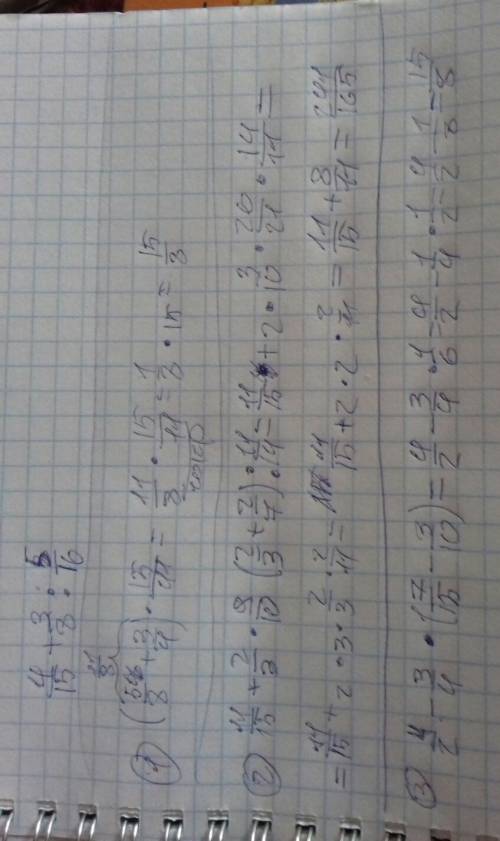 4/15 + 3/8 : 5/16
11/8
① (5/8 + 3/4) · 15/11 = 11/8 · 15/11 = 1/8 · 15 = 15/8
② 11/15 + 2/3 · 9/10 (2/3 + 2/7) · 11/14 = 11/15 + 2 · 3/10 · 20/21 · 14/11 =
= 11/15 + 2 · 3 · 2/3 · 2/11 = 11/15 + 2 · 2 · 2/11 = 11/15 + 8/11 = 241/165
③ 4/2 - 3/4 · (7/15 - 3/10) = 4/2 - 3/4 · 1/6 = 4/2 - 1/4 · 1/2 = 4/2 - 1/8 = 15/8